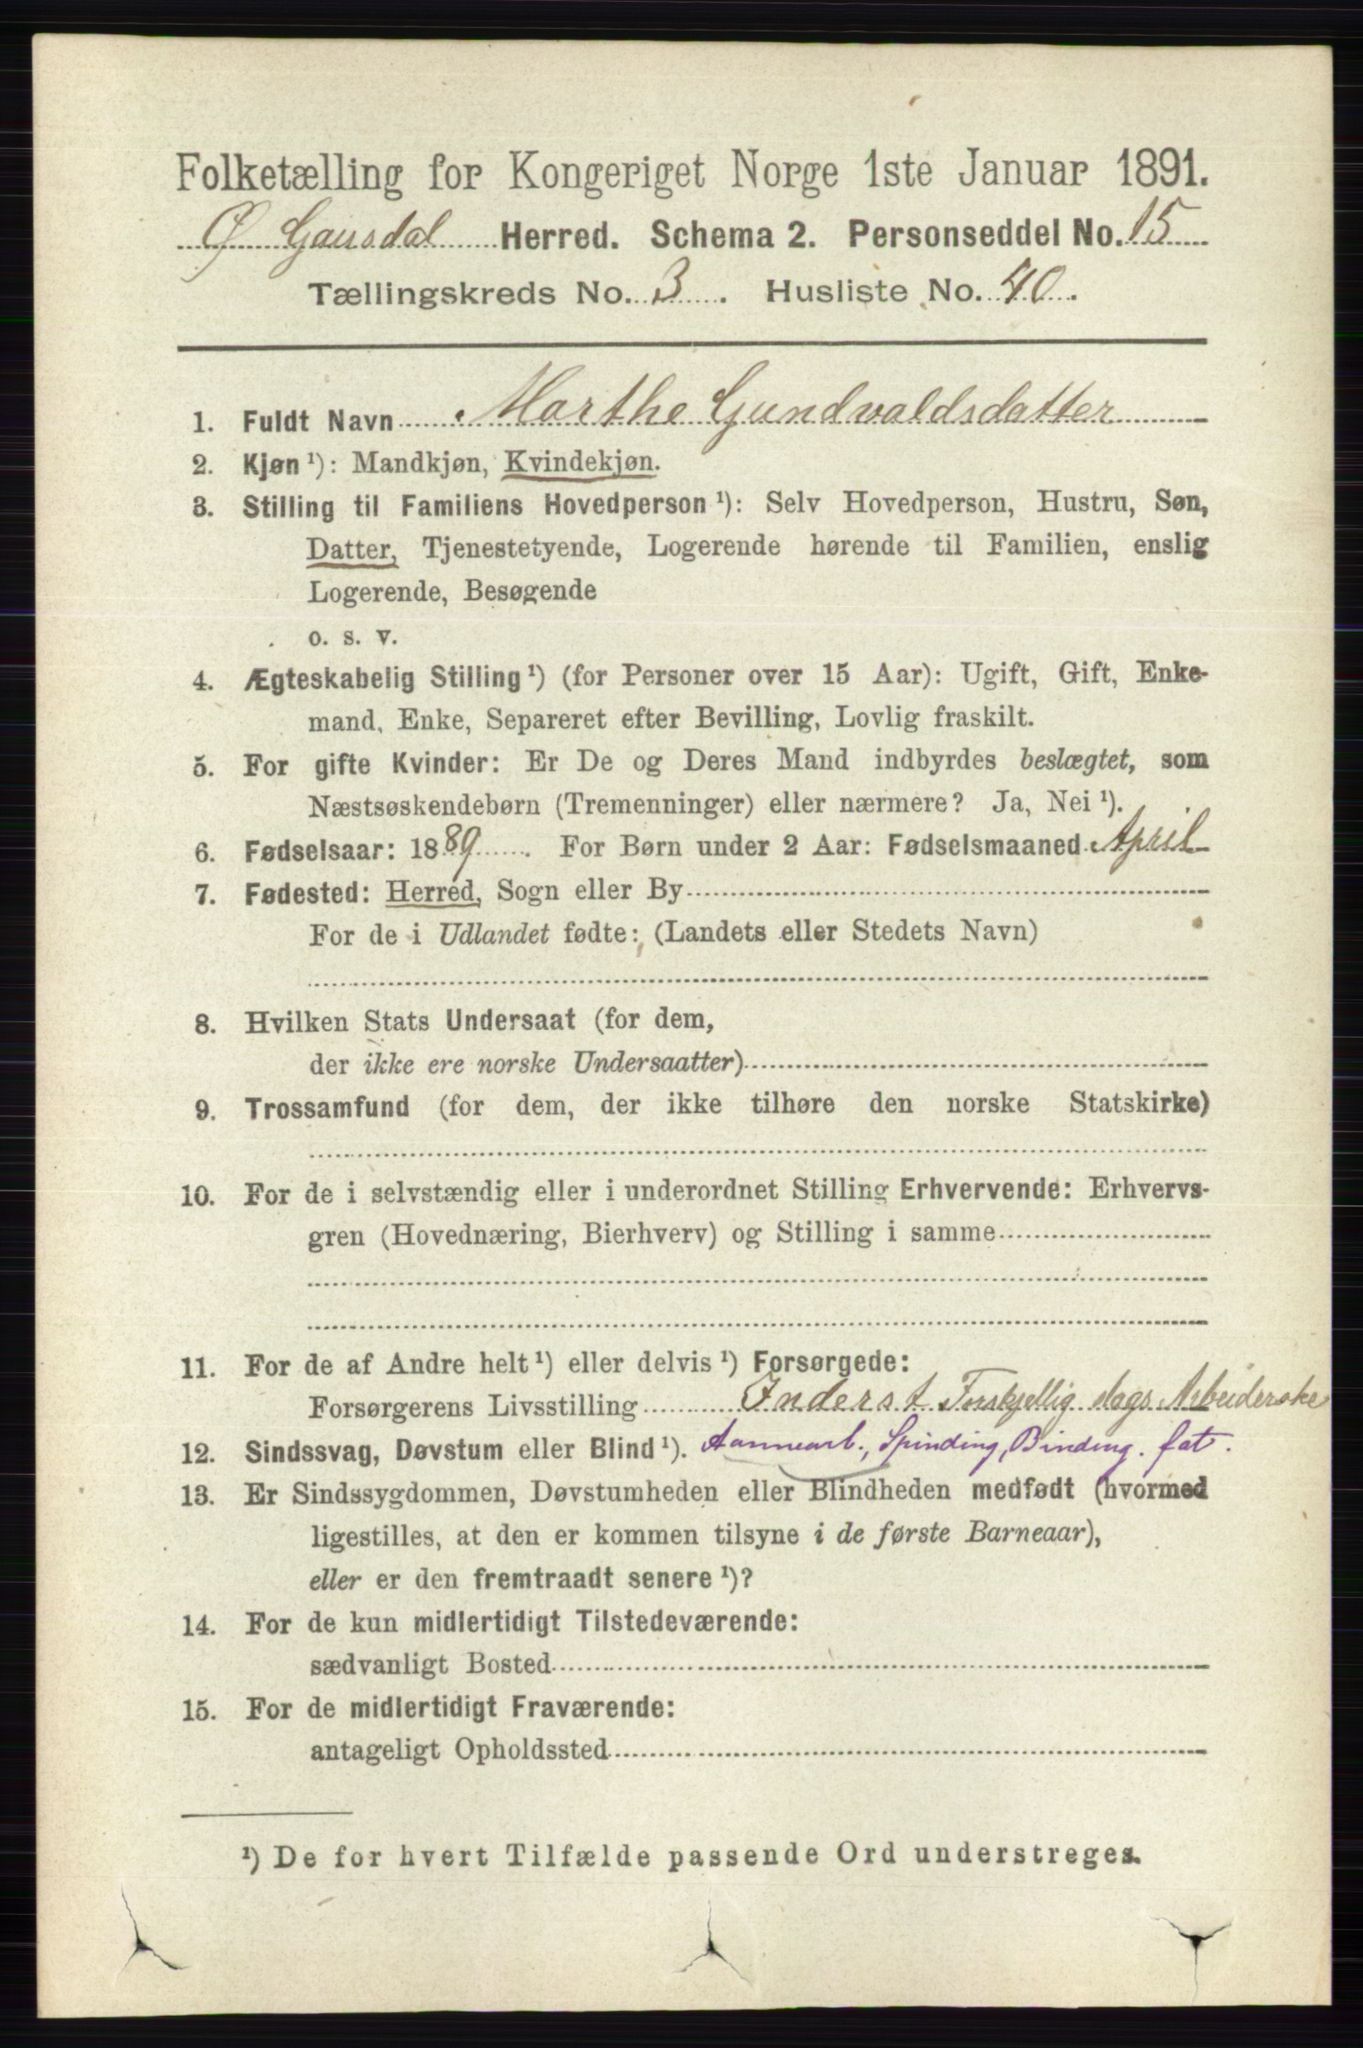 Folketælling for Kongeriget Norge 1ste Januar 1891.
Ø Gausdal Herred. Schema 2. Personseddel No. 15
Tællingskreds No. 3. Husliste No. 40.
1. Fuldt Navn Marthe Gundvaldsdatter
2. Kjøn ¹): Mandkjøn, Kvindekjøn.
3. Stilling til Familiens Hovedperson ¹): Selv Hovedperson, Hustru, Søn,
Datter, Tjenestetyende, Logerende hørende til Familien, enslig
Logerende, Besøgende
o. s. v.
4. Ægteskabelig Stilling ¹) (for Personer over 15 Aar): Ugift, Gift, Enke-
mand, Enke, Separeret efter Bevilling, Lovlig fraskilt.
5. For gifte Kvinder: Er De og Deres Mand indbyrdes beslægtet, som
Næstsøskendebørn (Tremenninger) eller nærmere? Ja, Nei ¹).
6. Fødselsaar: 1889. For Børn under 2 Aar: Fødselsmaaned April
7. Fødested: Herred, Sogn eller By
For de i Udlandet fødte: (Landets eller Stedets Navn)
8. Hvilken Stats Undersaat (for dem,
der ikke ere norske Undersaatter)
9. Trossamfund (for dem, der ikke tilhøre den norske Statskirke)
10. For de i selvstændig eller i underordnet Stilling Erhvervende: Erhvervs-
gren (Hovednæring, Bierhverv) og Stilling i samme
11. For de af Andre helt ¹) eller delvis ¹) Forsørgede:
Forsørgerens Livsstilling Inderst Forskjellig slags Arbeiderske
12. Sindssvag, Døvstum eller Blind ¹). Aannearb., Spinding, Binding. fat.
13. Er Sindssygdommen, Døvstumheden eller Blindheden medfødt (hvormed
ligestilles, at den er kommen tilsyne i de første Barneaar),
eller er den fremtraadt senere ¹)?
14. For de kun midlertidigt Tilstedeværende:
sædvanligt Bosted
15. For de midlertidigt Fraværende:
antageligt Opholdssted
¹) De for hvert Tilfælde passende Ord understreges.